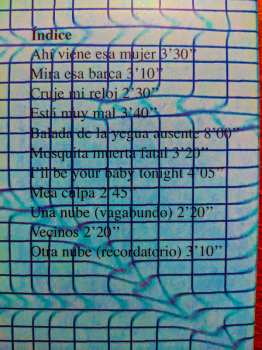 Índice
Ahí viene esa mujer 3’30’’
Mira esa barca 3’10’’
Cruje mi reloj 2’30’’
Está muy mal 3’40’’
Balada de la yegua ausente 8’00’’
Mosquita muerta fatal 3’20’’
I’ll be your baby tonight 4’05’’
Mea culpa 2’45’’
Una nube (vagabundo) 2’20’’
Vecinos 2’20’’
Otra nube (recordatorio) 3’10’’